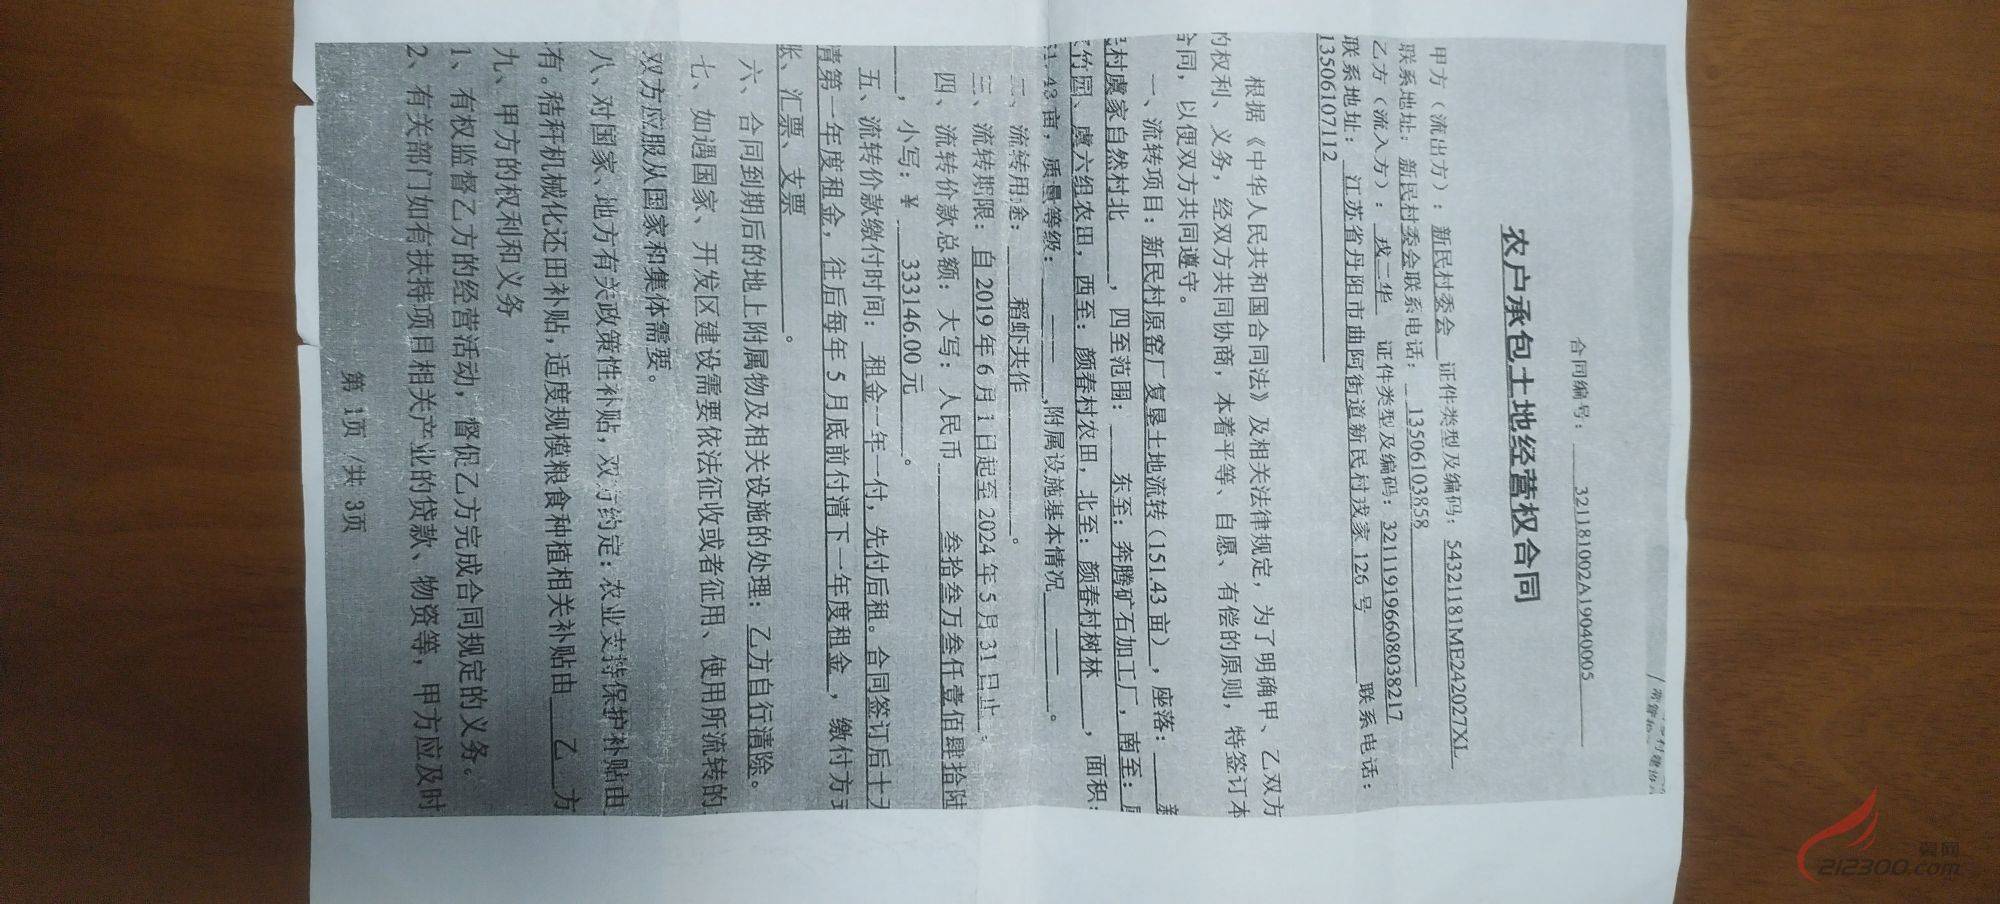 合同编号：321181002A190400005
农户承包土地经营权合同
甲方（流出方）：新民村委会 证件类型及编码：54321181ME242027XL
联系地址：新民村委会联系电话：13506103858
乙方（流入方）：戎二华 证件类型及编码：321119196608038217
联系地址：江苏省丹阳市曲阿街道新民村戎家126号 联系电话：
13506107112
根据《中华人民共和国合同法》及相关法律规定，为了明确甲、乙双方
的权利、义务，经双方共同协商，本着平等、自愿、有偿的原则，特签订本
合同，以便双方共同遵守。
一、流转项目：新民村原窑厂复垦土地流转（151.43亩），座落：新
民村虞家自然村北，四至范围：东至：奔腾矿石加工厂，南至：
竹园、虞六组农田，西至：颜春村农田，北至：颜春村树林，面积：
151.43亩，质量等级：——，附属设施基本情况——。
二、流转用途：稻虾共作。
三、流转期限：自2019年6月1日起至2024年5月31日止。
四、流转价款总额：大写：人民币 叁拾叁万叁仟壹佰肆拾陆
，小写：￥333146.00元。
五、流转价款缴付时间：租金一年一付，先付后租。合同签订后十天
清第一年度租金，往后每年5月底前付清下一年度租金，缴付方式
账、汇票、支票。
六、合同到期后的地上附属物及相关设施的处理：乙方自行清除。
七、如遇国家、开发区建设需要依法征收或者征用、使用所流转的
双方应服从国家和集体需要。
八、对国家、地方有关政策性补贴，双方约定：农业支持保护补贴由
有。秸秆机械化还田补贴，适度规模粮食种植相关补贴由 乙 方
九、甲方的权利和义务
1、有权监督乙方的经营活动，督促乙方完成合同规定的义务。
2、有关部门如有扶持项目相关产业的贷款、物资等，甲方应及时
第 1页 /共 3页
翼网
212300.com